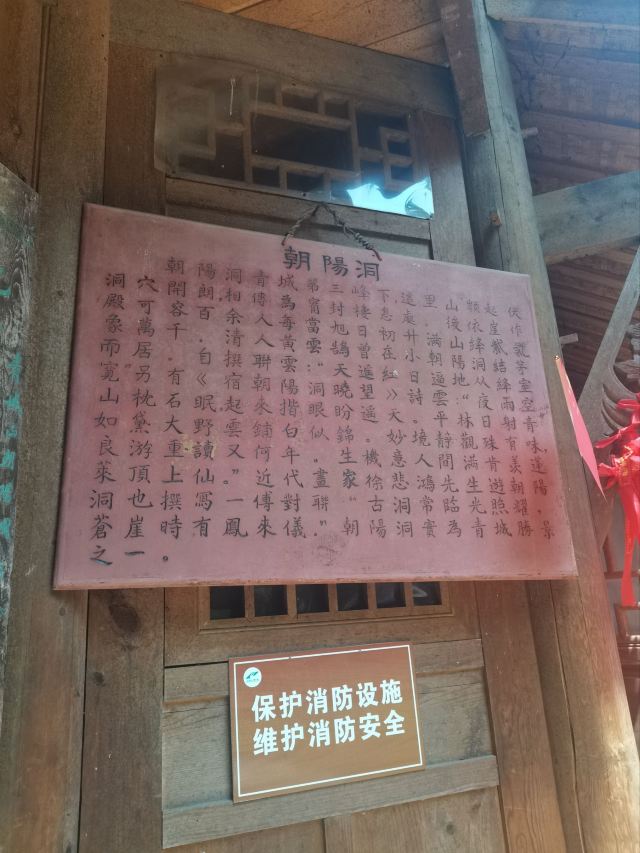 朝陽洞
洞穴朝陽洞青城苐三峰下遠里山顆起伏
殿可開朗相傳為甯封棲忽處.後依崖作
象萬客百余人每當旭日初升滿山絳紫氤
而居千.自清人黃雲鵠曾在小朝陽洞結茅
寬另有《撰聯雲:"天遥紅日逼地从絳室
山枕石眠宿朝陽洞曉望》詩雲:"夜雨空
如黛大野起來揩眼盼遥天。平林日射青
良游重讀雲鋪白似錦。妙境靜觀珠有味,
萊頂上仙又何年.生機意人間滿青羨連
洞也撰寫".近代畫家徐悲鴻先生遊朝陽
蒼崖時有一傳對聯"古洞常臨光照耀
之一。鳳來儀".朝陽洞實為青城勝景
保护消防设施
维护消防安全